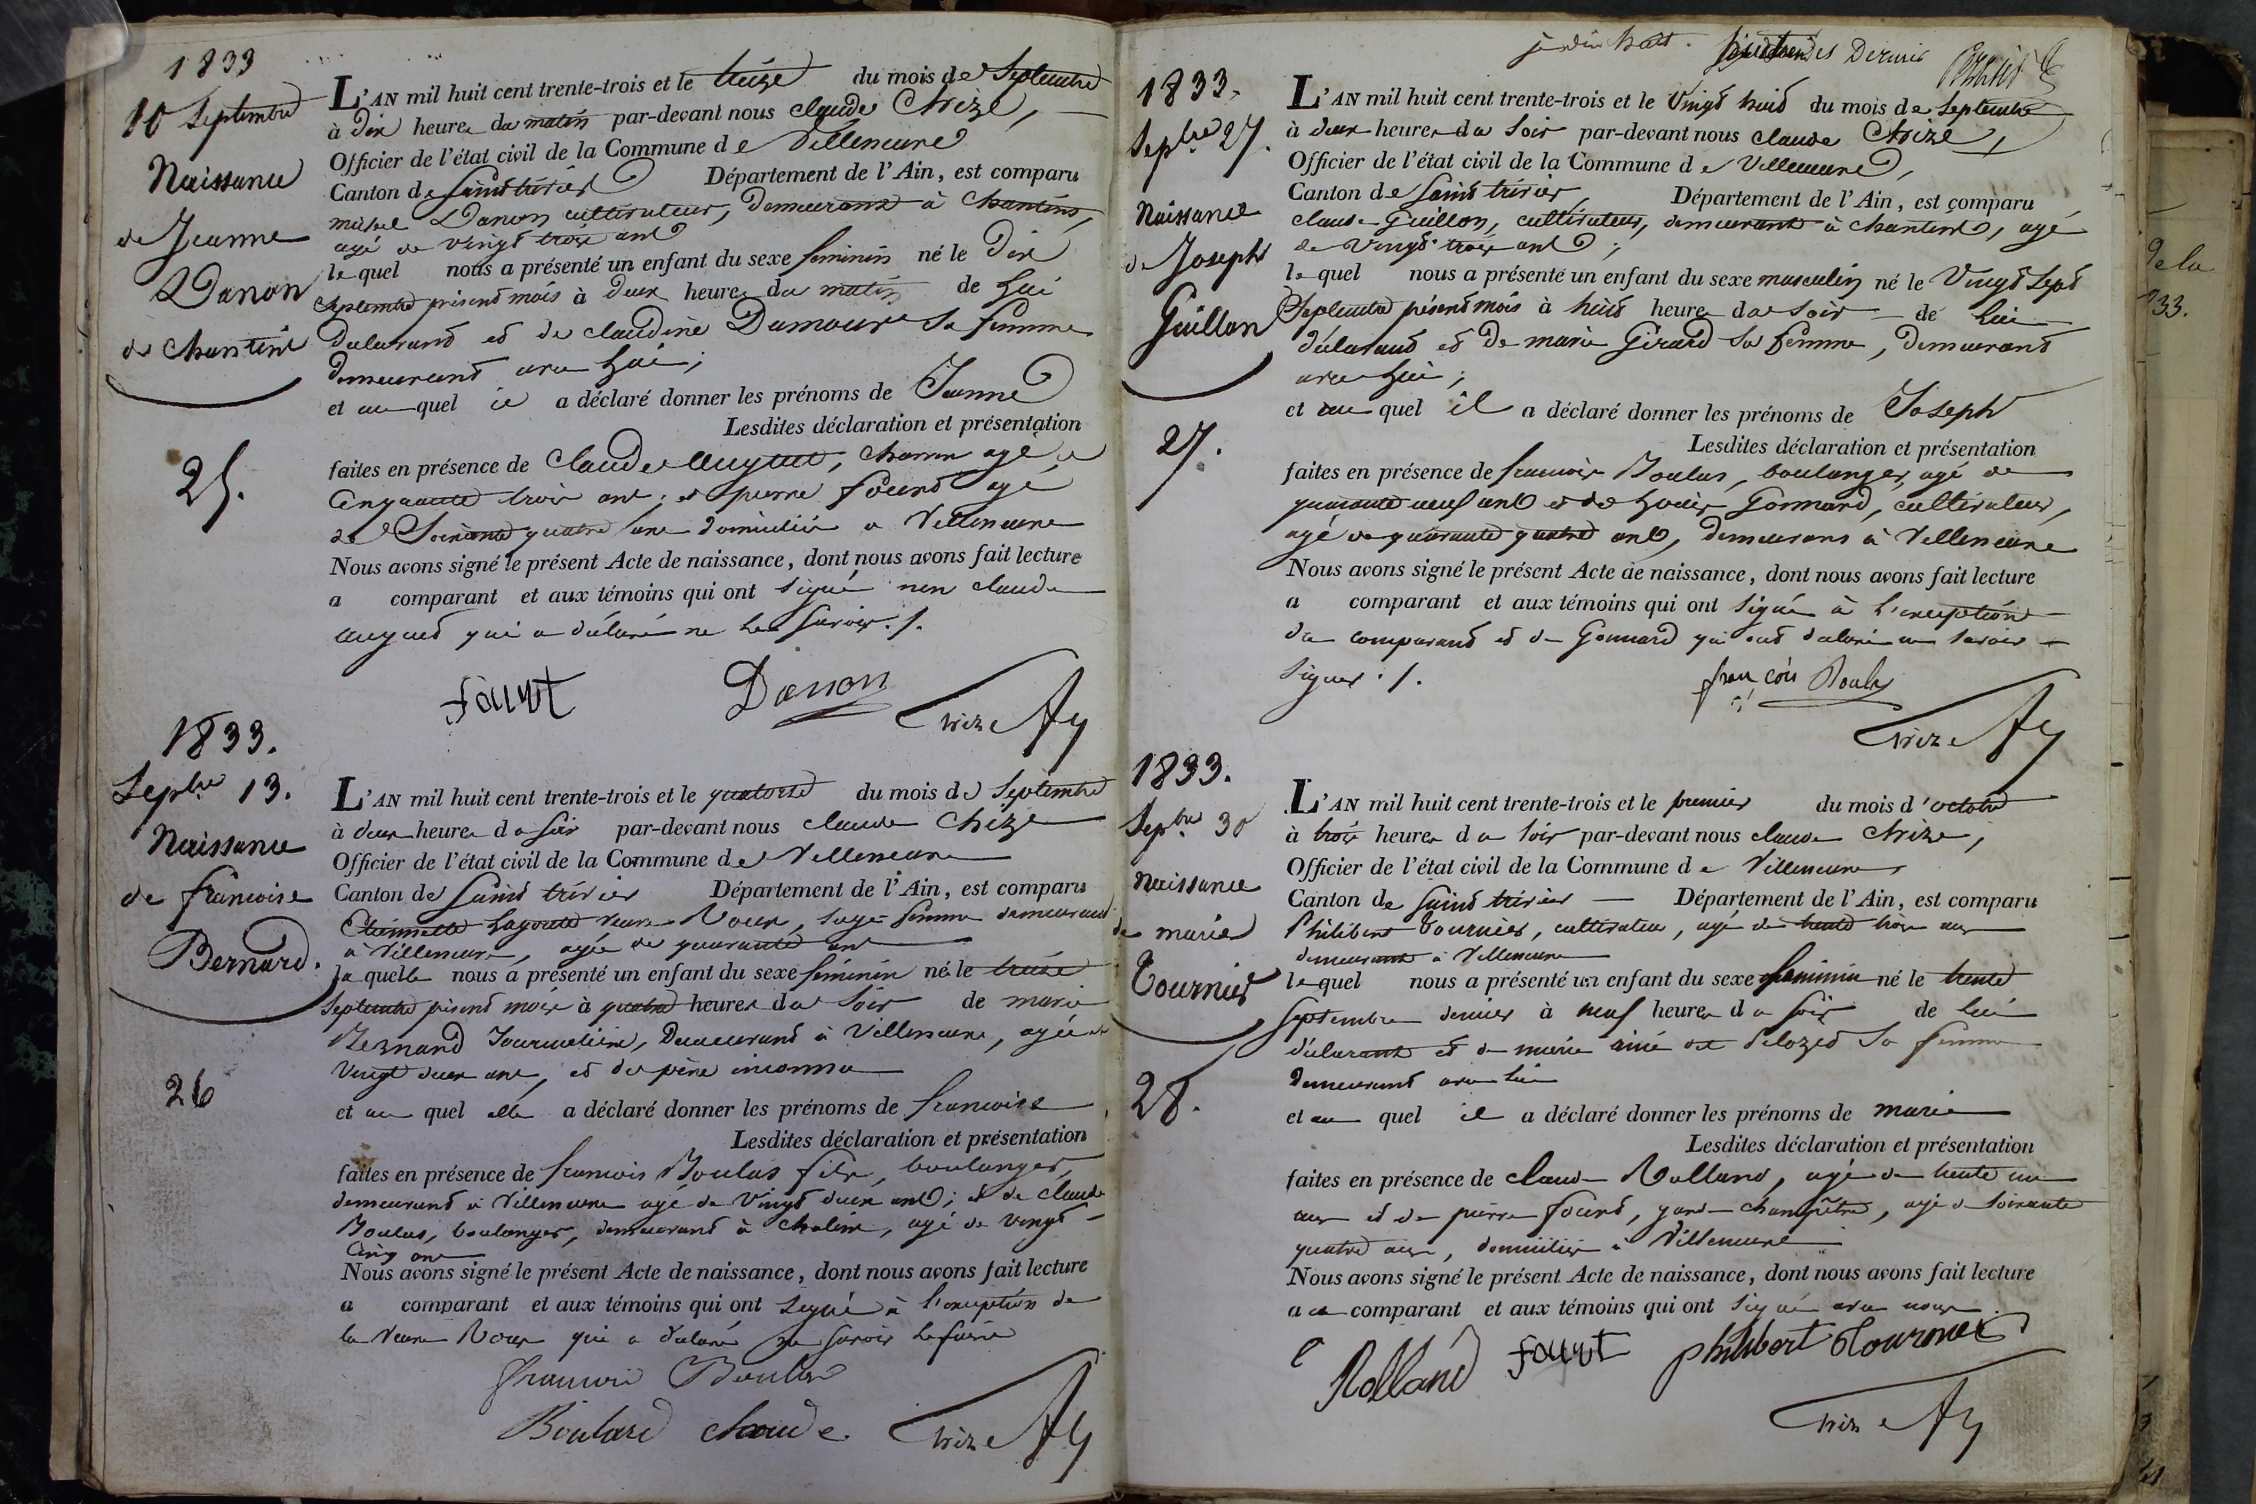 1833
10 Septembre
Naissance
de Jeanne
Danon
de Chantins
25.
L'AN mil huit cent trente-trois et le treize du mois de Septembre
à dix heures du matin par-devant nous claude Chize,
Officier de l'état civil de la Commune de Villeneuve
Canton de Saint trivier Département de l'Ain, est comparu
michel Danon cultivateur, demeurant à Chantins,
agé de vingt trois ans
lequel nous a présenté un enfant du sexe feminin né le dix
Septembre présent mois à deux heures du matin de lui
déclarant et de claudine Damour sa femme
demeurant avec lui;
et auquel il a déclaré donner les prénoms de Jeanne
Lesdites déclaration et présentation
faites en présence de Claude agé
Cinquante trois ans; et pierre fourt agé
de Soixante quatre ans domicilié a Villeneuve
Nous avons signé le présent Acte de naissance, dont nous avons fait lecture
a comparant et aux témoins qui ont signé non claude
qui a déclaré ne le savoir ./.
fourt Danon
Chize
1833.
Septbre 13.
Naissance
de francoise
Bernard.
26
L'AN mil huit cent trente-trois et le quatorze du mois de Septembre
à deux heures du soir par-devant nous claude Chize
Officier de l'état civil de la Commune de Villeneuve
Canton de Saint trivier Département de l'Ain, est comparu
Etiennette veuve Roux, sage femme demeurant
à Villeneuve, agée de quarante ans
laquelle nous a présenté un enfant du sexe féminin né le treize
Septembre présent mois à quatre heures du soir de marie
Bernard Journalière, Demeurant à Villeneuve, agée de
vingt deux ans, et de père inconnu
et auquel elle a déclaré donner les prénoms de francoise
Lesdites déclaration et présentation
faites en présence de francois Boulas fils, boulanger,
demeurant à Villeneuve agé de Vingt deux ans; et de claude
Boulas, boulanger, demeurant à agé de vingt
Cinq ans
Nous avons signé le présent Acte de naissance, dont nous avons fait lecture
a comparant et aux témoins qui ont signé à l'exception de
la Veuve Roux qui a déclaré ne savoir le faire
Boulard claude
Chize
1833.
Septbre 27.
Naissance
de Joseph
Guillon
27.
L'AN mil huit cent trente-trois et le Vingt huit du mois de Septembre
à deux heures du soir par-devant nous claude Chize,
Officier de l'état civil de la Commune de Villeneuve,
Canton de Saint trivier, Département de l'Ain, est comparu
claude Guillon, cultivateur, demeurant à Chantins, agé
de vingt trois ans;
lequel nous a présenté un enfant du sexe masculin né le Vingt Sept
Septembre présent mois à huit heures du soir de lui
déclarant et de marie Girard sa femme, demeurant
avec lui;
et auquel il a déclaré donner les prénoms de Joseph
Lesdites déclaration et présentation
faites en présence de francois Boulas, boulanger, agé de
quarante neuf ans et de Louis Gonnard, cultivateur,
agé de quarante quatre ans, demeurans à Villeneuve
Nous avons signé le présent Acte de naissance, dont nous avons fait lecture
a comparant et aux témoins qui ont signé à l'exception
du comparant et de Gonnard qui ont déclaré ne savoir
signer ./.
françois Boulas
Chize
1833.
Septbre 30
naissance
de marie
Tournier
28.
L'AN mil huit cent trente-trois et le premier du mois d'octobre
à trois heures du soir par-devant nous claude Chize,
Officier de l'état civil de la Commune de Villeneuve
Canton de Saint trivier Département de l'Ain, est comparu
Philibert Tournier, cultivateur, agé de trente trois ans
demeurant à Villeneuve
lequel nous a présenté un enfant du sexe feminin né le trente
Septembre dernier à neuf heures du soir de lui
déclarant et de marie sa femme
demeurant avec lui
et auquel il a déclaré donner les prénoms de marie
Lesdites déclaration et présentation
faites en présence de claude Rolland, agé de trente un
ans et de pierre fourt, garde champêtre, agé de soixante
quatre ans, domiciliés à Villeneuve
Nous avons signé le présent Acte de naissance, dont nous avons fait lecture
au comparant et aux témoins qui ont signé avec nous
Rolland fourt philibert Tournier
Chize
de la
33.